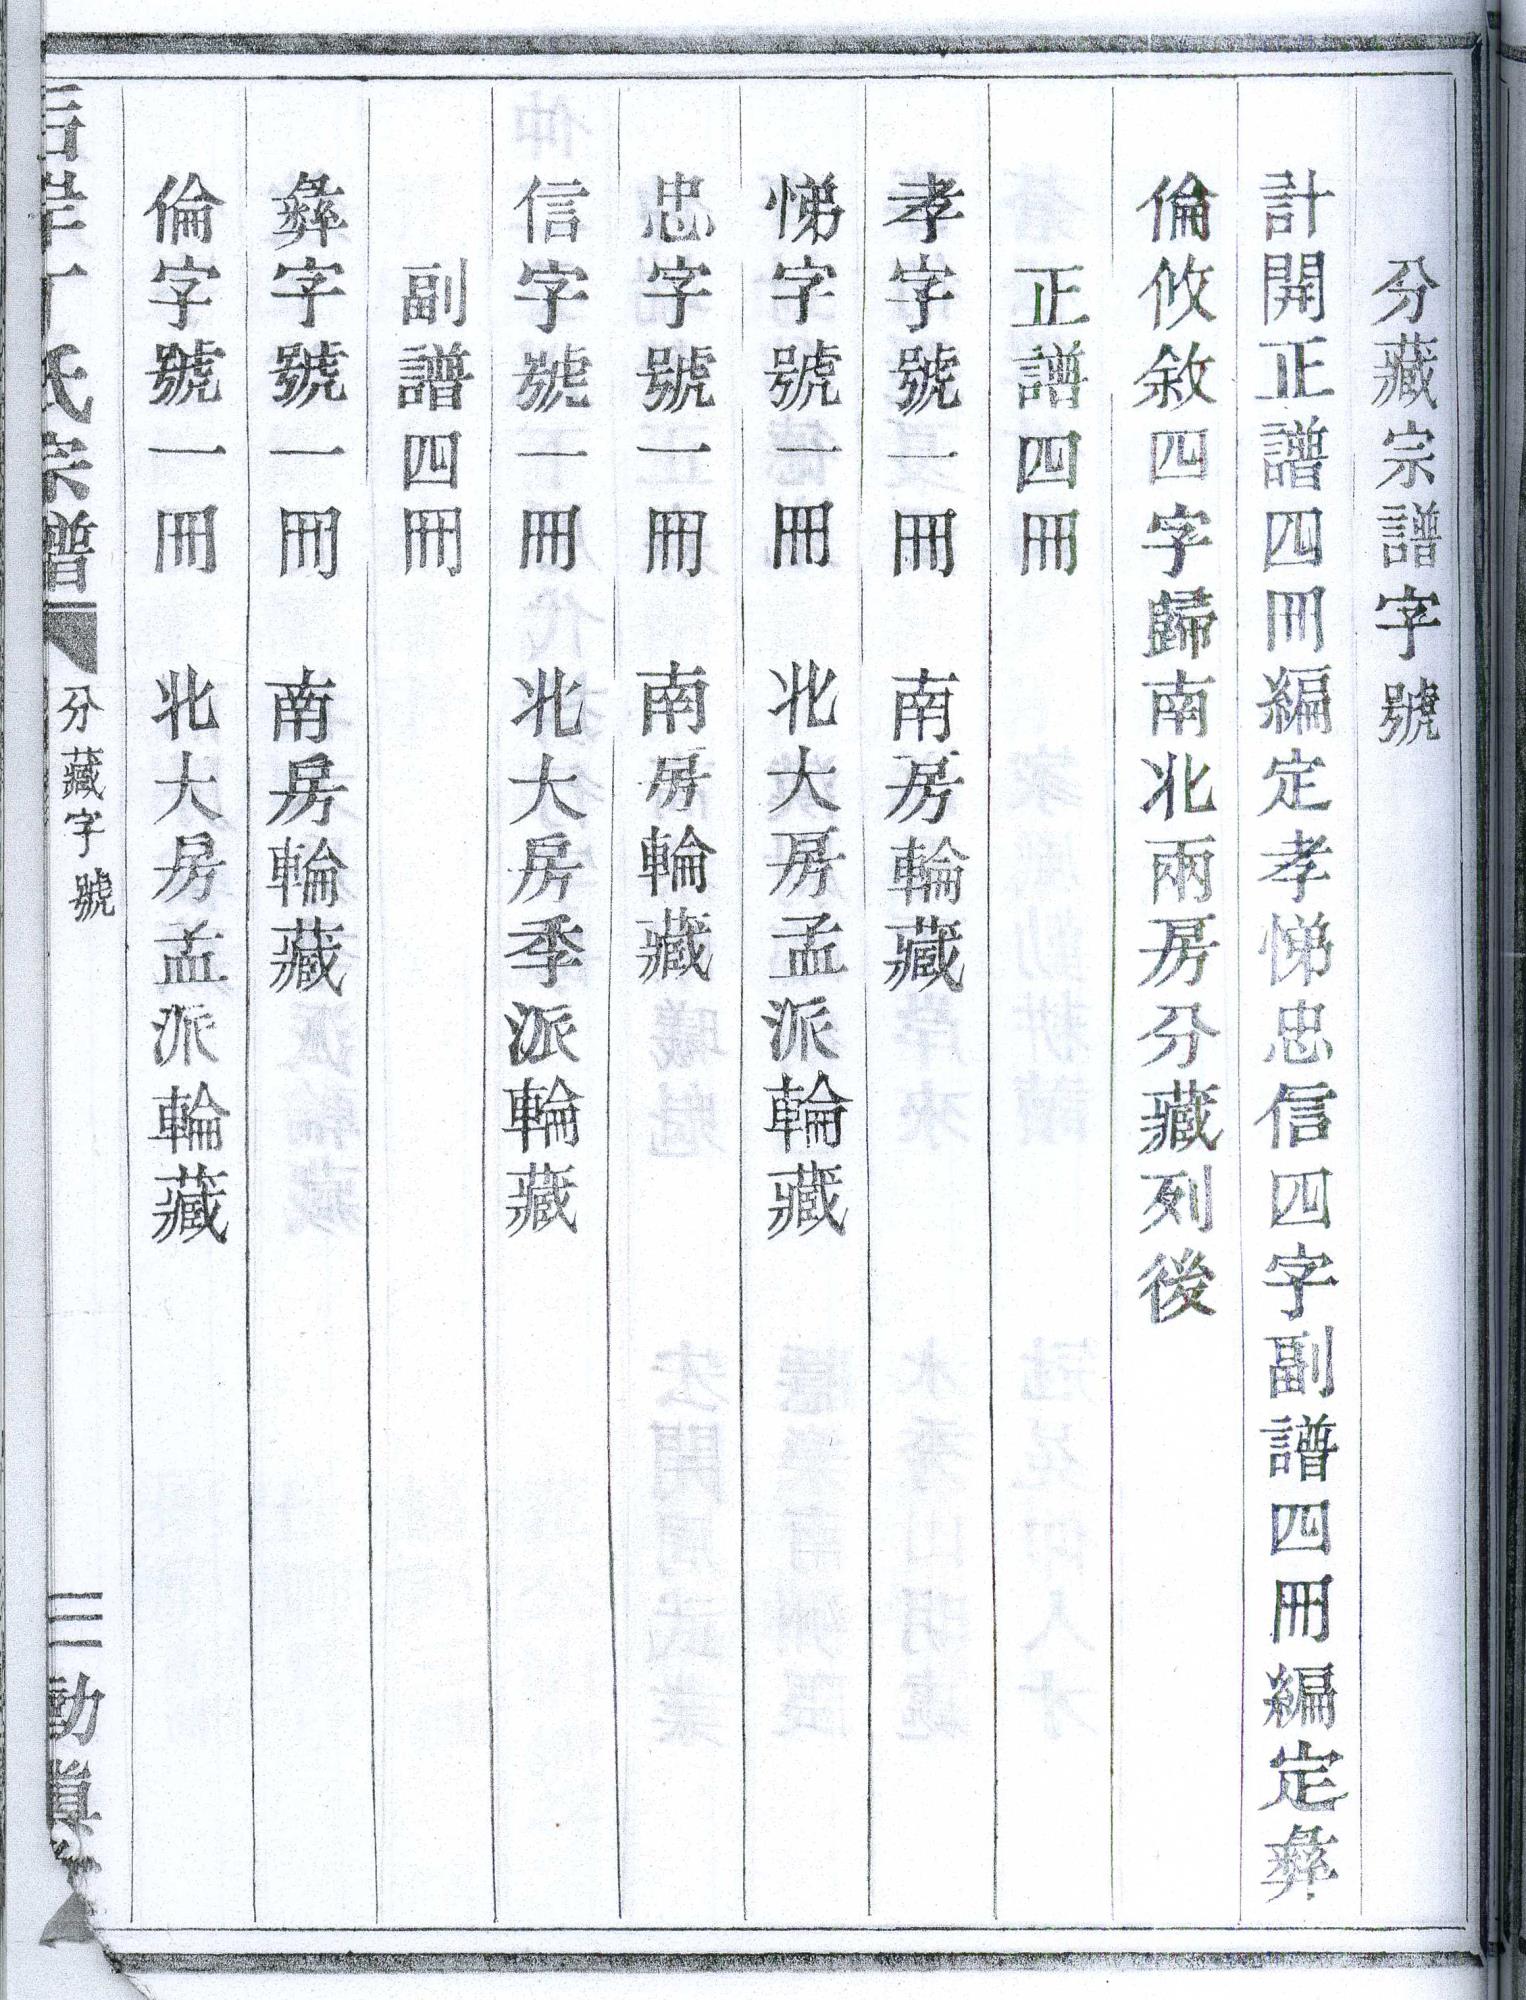 分藏宗譜字號
計開正譜四冊編定孝悌忠信四字副譜四冊編定彝
倫攸敘四字歸南北兩房分藏列後
正譜四冊
孝字號一冊　南房輪藏
悌字號一冊　北大房孟派輪藏
忠字號一冊　南房輪藏
信字號一冊　北大房季派輪藏
副譜四冊
彝字號一冊　南房輪藏
倫字號一冊　北大房孟派輪藏
氏宗譜　分藏字號　三